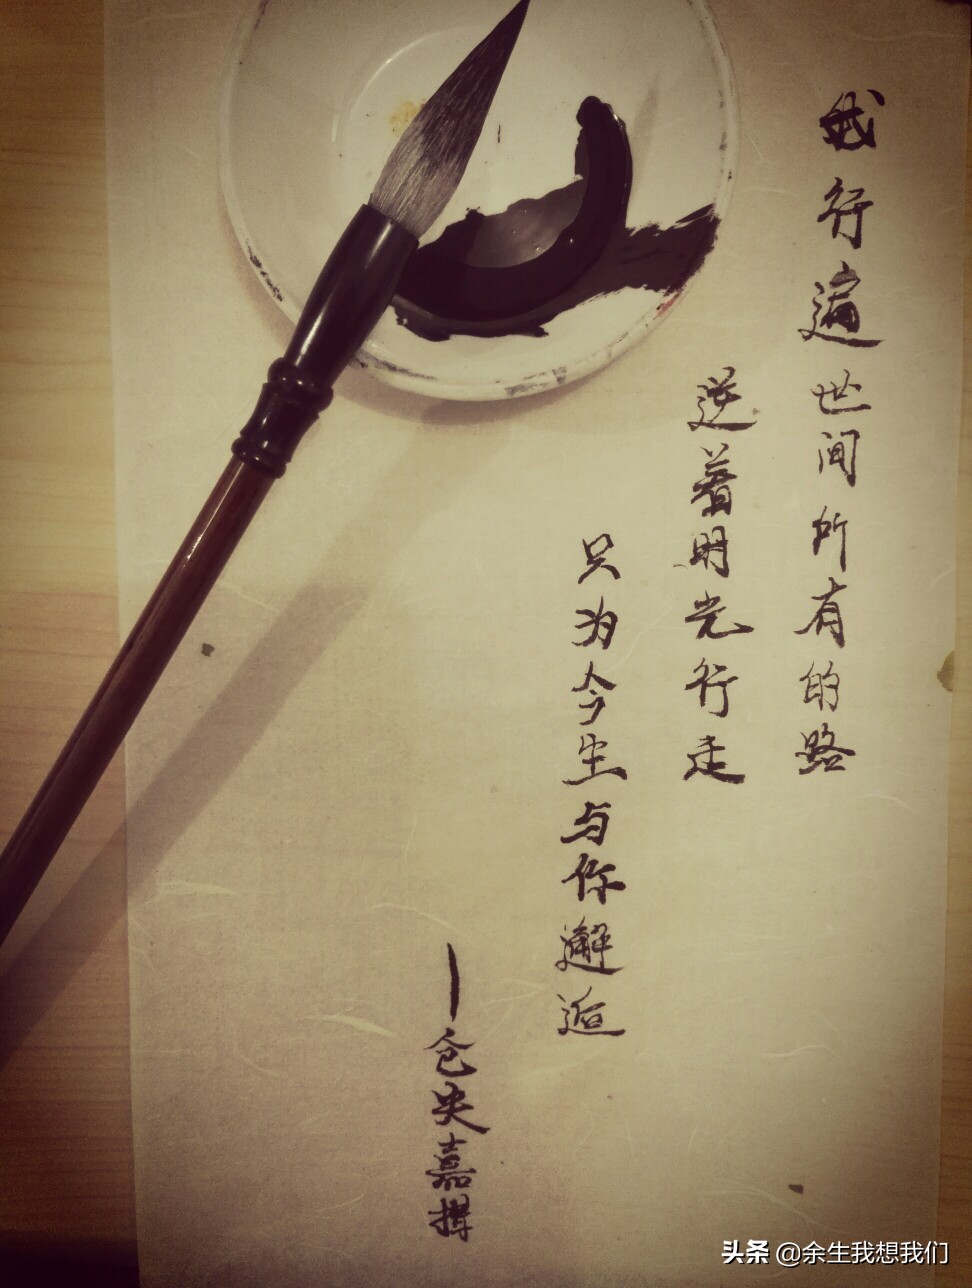 我行遍世间所有的路
逆着明光行走
只为今生与你邂逅
—仓央嘉措
头条 @余生我想我们